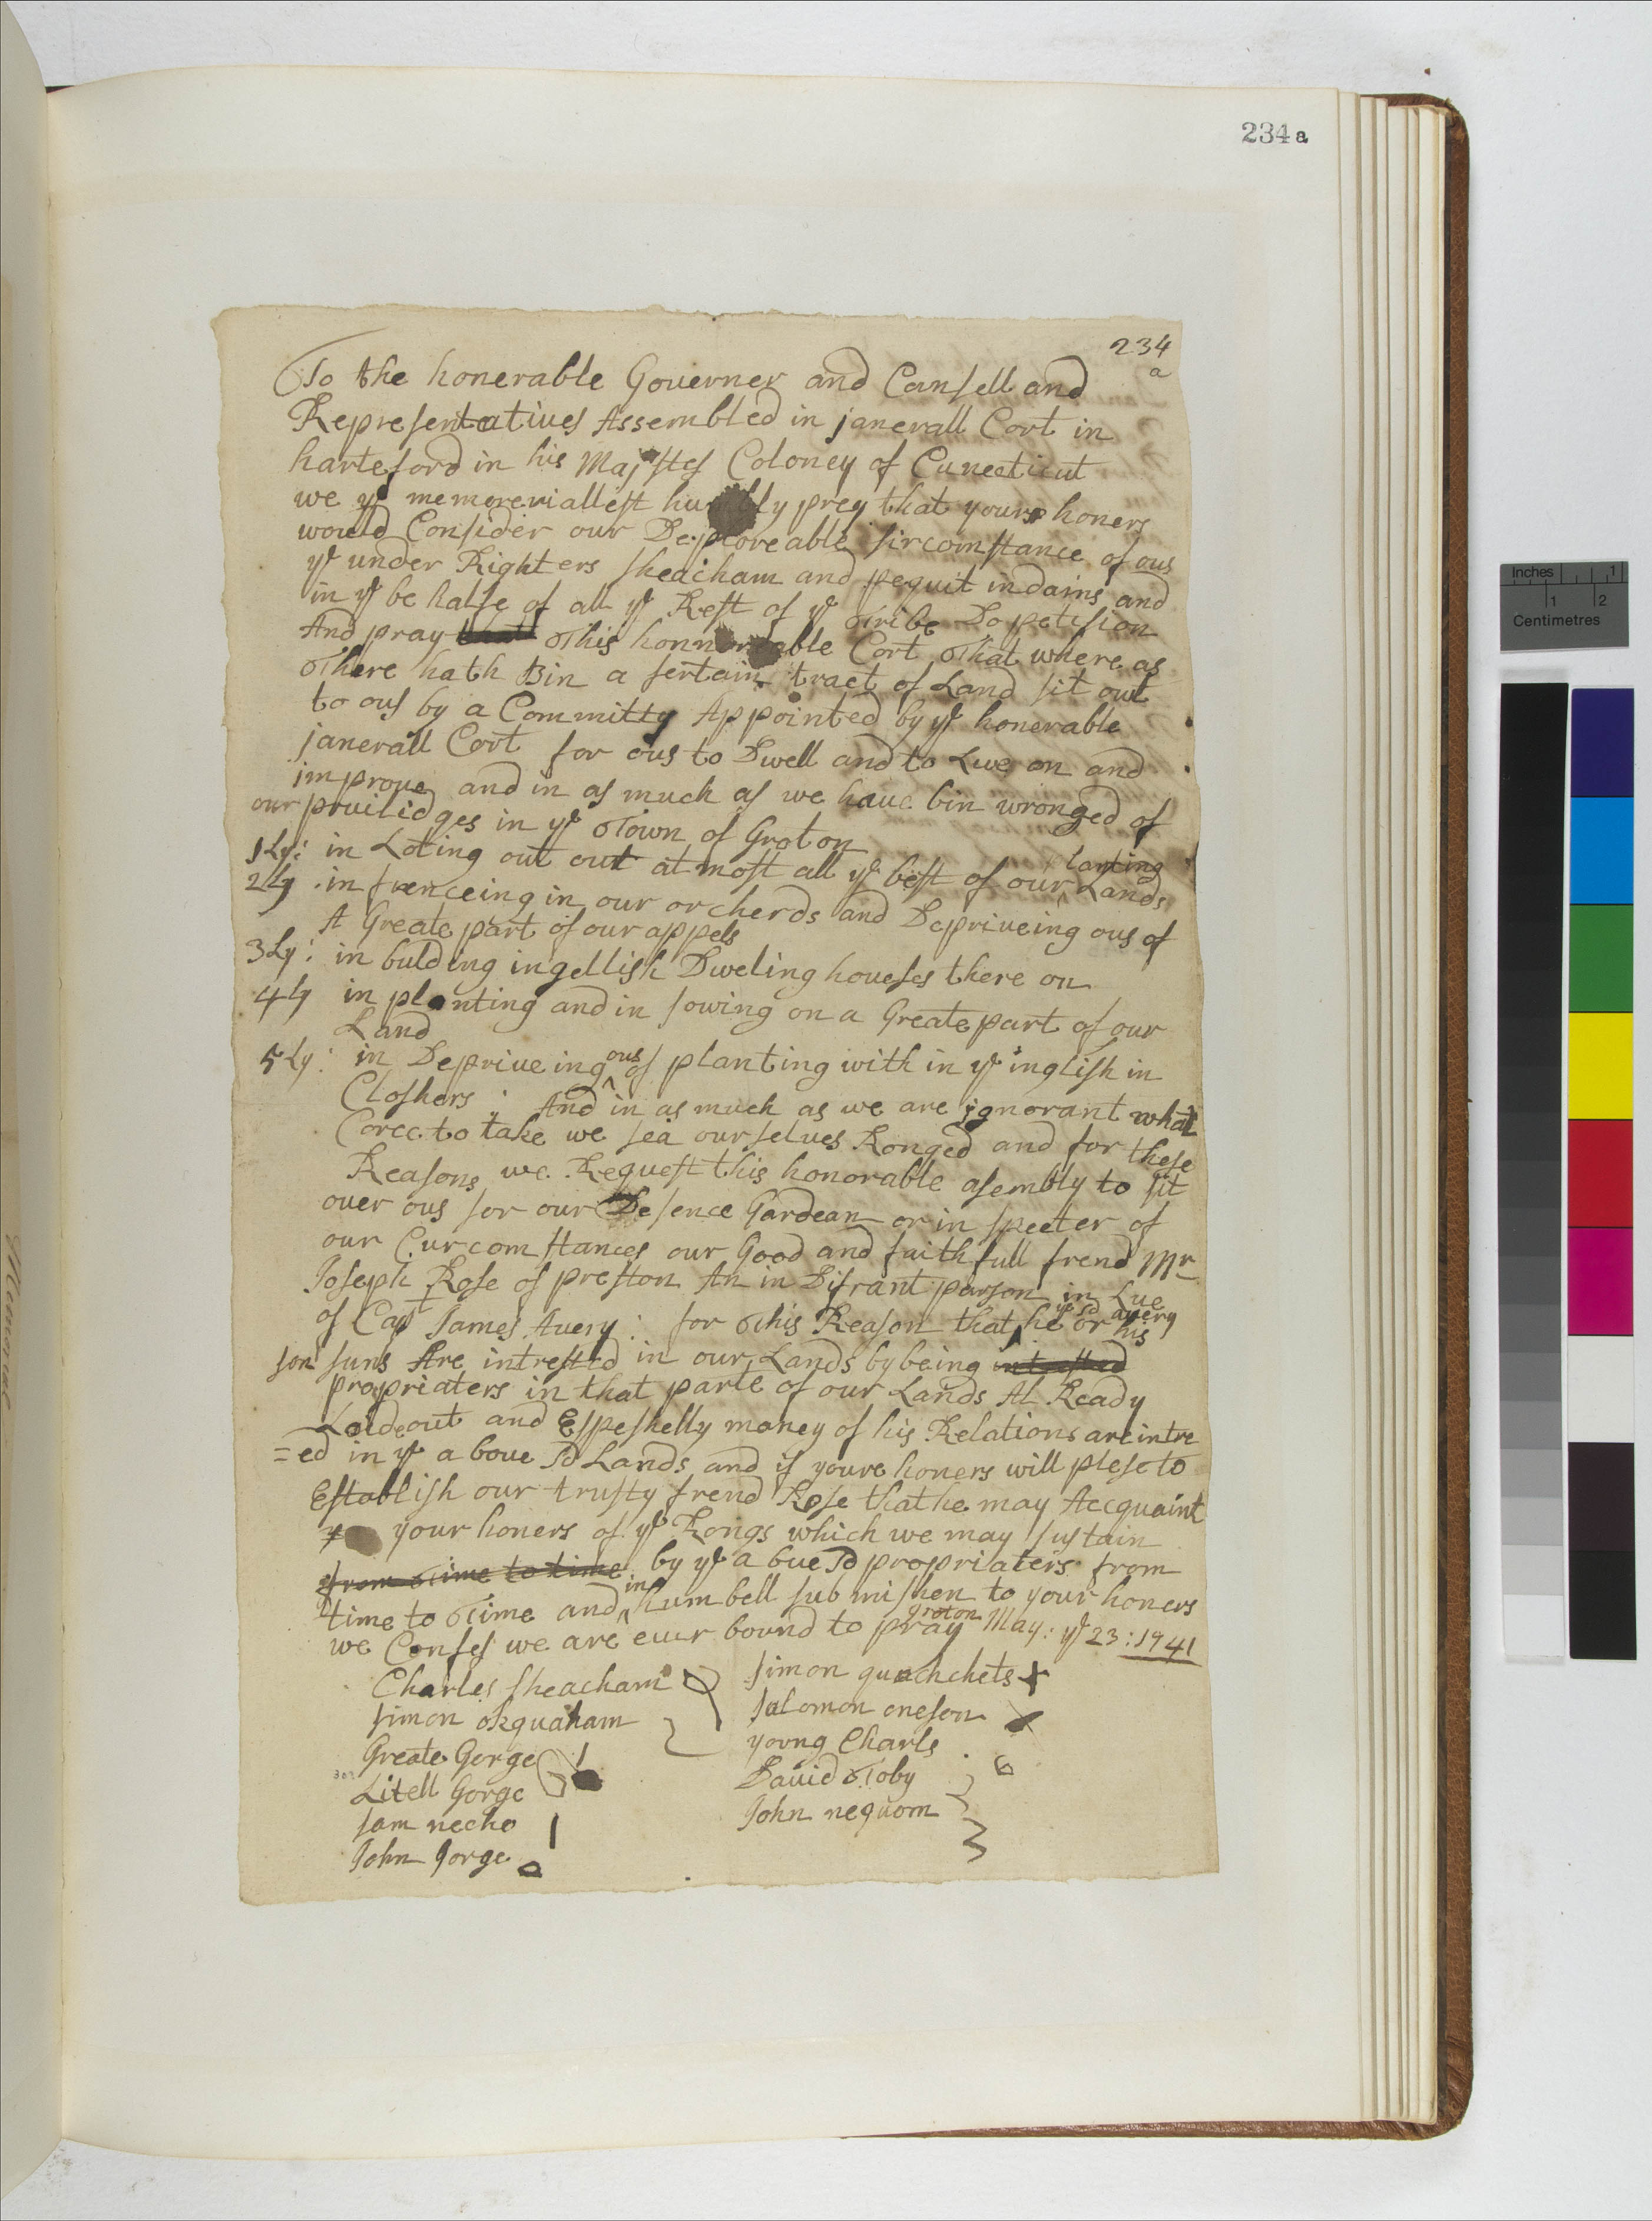 234 a
234
a
To the honerable Governer and Counsell and
Representatives Assembled in janerall Cort in
harteford in his Majstes Coloney of Cunecticut
we ye memoreriallest humbly prey that youre honers
would Consider our Deploreable sircomstance of ous
ye under Righters Sheacham and pequit indains and
in ye be halfe of all ye Rest of ye Tribe Do petision
And pray that This honnorable Cort That where as
There hath Bin a sertain tract of Land sit out
to ous by a Committy Appointed by ye honerable
janerall Cort for ous to Dwell and to Live on and
improve and in as much as we have bin wronged of
our privilidges in ye Town of Groton
1Ly: in Loting out out at most all ye best of our lanting Lands
2Ly in frenceing in our orcherds and Depriveing ous of
A Greate part of our appels
3Ly: in bulding ingellish Dweling houeses there on
4Ly in planting and in sowing on a Greate part of our
Land
5Ly: in Depriveing ous of planting with in ye inglish in
Closhers: And in as much as we are ignorant what
Corce to take we sea our selves Ronged and for these
Reasons we Request this honorable asembly to sit
over ous for our Defence Gardean or in specter of
our Curcomstances our Good and faithfull frend Mr
Joseph Rose of preston An in Difrant parson in Lue
of Capt James Avery: for This Reason that he ye sd avery or his
son suns Are intrested in our Lands by being intrested
propriaters in that parte of our Lands Al Ready
Laideout and Espeshelly maney of his Relations are intre
=ed in ye a bove sd Lands and if youre honers will plese to
Establish our trusty frend Rose that he may Accquaint
your honers of ye Rongs which we may sustain
from time to time by ye a bue sd propriaters from
time to Time and in humbell submishen to your honers
we Confes we are ever bound to pray groton May: ye 23: 1741
Charles Sheacham
Simon okquaham
Greate Gorge
Litell Gorge
Sam necho
John Jorge
Simon quachchets
Salomon oneson
young Charls
David Toby
John nequom
Inches 1
1 2
Centimetres